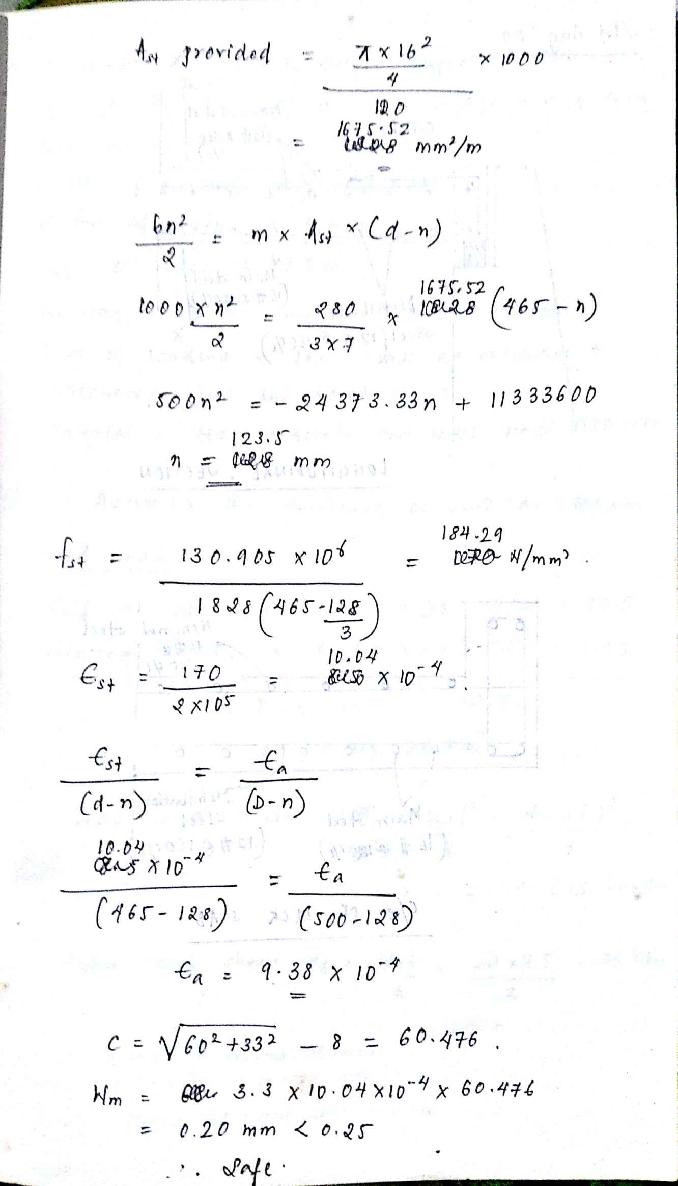 Ast provided = π x 16² / 4 x 1000 / 120
= 1675.52 mm²/m
bn² / 2 = m x Ast x (d-n)
1000 x n² / 2 = 280 / 3x7 x 1675.52 (465 - n)
500n² = - 24373.33n + 11333600
n = 123.5 mm
fst = 130.905 x 10⁶ / 1828 (465 - 128/3) = 184.29 N/mm².
Est = 170 / 2 x 10⁵ = 10.04 x 10⁻⁴.
Est / (d-n) = Ea / (D-n)
10.04 x 10⁻⁴ / (465 - 128) = Ea / (500 - 128)
Ea = 9.38 x 10⁻⁴
C = √60² + 33² - 8 = 60.476.
Wm = 3.3 x 10.04 x 10⁻⁴ x 60.476
= 0.20 mm < 0.25
∴ Safe.